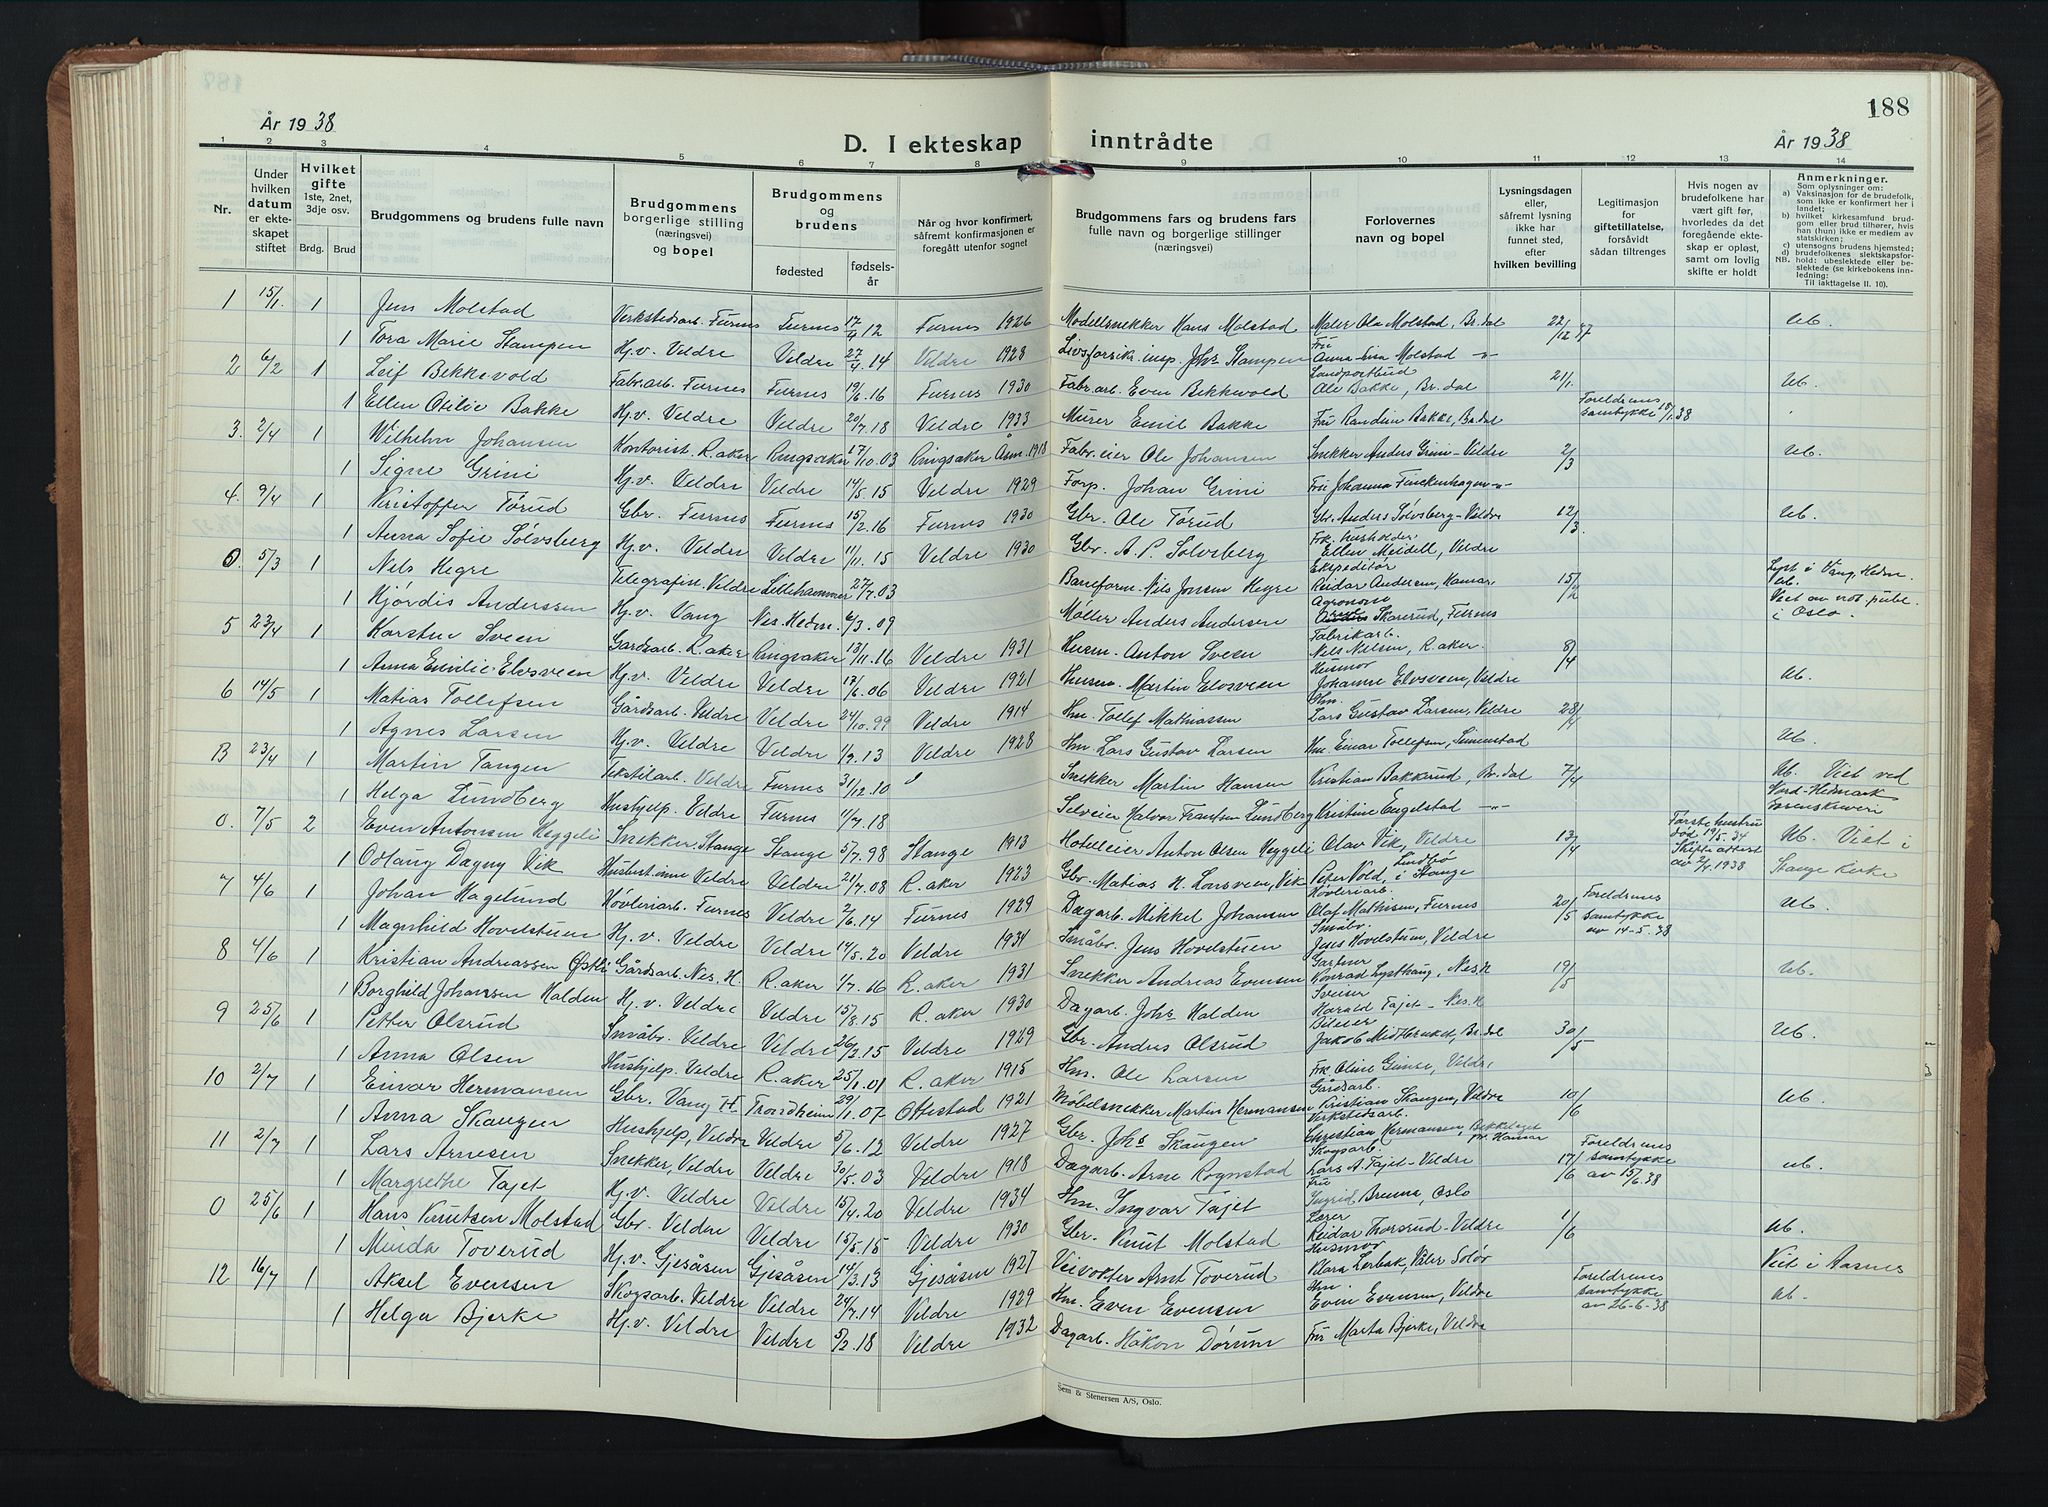 188
År 1938
D. I ekteskap inntrådte
År 1938
1 2 3 4 5 6 7 8 9 10 11 12 13 14
Nr.
Under hvilken datum er ekteskapet stiftet
Hvilket gifte 1ste, 2net, 3dje osv.
Brdg. Brud
Brudgommens og brudens fulle navn
Brudgommens borgerlige stilling (næringsvei) og bopel
Brudgommens og brudens
fødested
fødselsår
Når og hvor konfirmert, såfremt konfirmasjonen er foregått utenfor sognet
Brudgommens fars og brudens fars fulle navn og borgerlige stillinger (næringsvei)
Forlovernes navn og bopel
Lysningsdagen eller, såfremt lysning ikke har funnet sted, efter hvilken bevilling
Legitimasjon for giftetillatelse, forsåvidt sådan tiltrenges
Hvis nogen av brudefolkene har vært gift før, hvorledes da det foregående ekteskap er opløst, samt om lovlig skifte er holdt
Anmerkninger.
Som oplysninger om:
a) Vaksinasjon for de brudefolk, som ikke er konfirmert her i landet;
b) hvilket kirkesamfund brudgom eller brud tilhører, hvis han (hun) ikke er medlem av statskirken;
c) utensogns brudens hjemsted;
d) brudefolkenes slektskapsforhold: ubeslektede eller beslektede (se kirkebokens innledning:
NB.
Til iakttagelse II. 10).
1 15/1. 1 Jens Molstad Verkstedsarb. Furnes Furnes 17/9 12 Furnes 1926 Modellsnekker Hans Molstad Maler Ola Molstad, Br.dal 22/12 37 Ub.
1 Tora Marie Stampen Hj.v. Veldre Veldre 27/4 .14 Veldre 1928 Livsforsikr.insp. Johs Stampen Fru Anna Lisa Molstad -"-
2 6/2 1 Leif Bekkevold Fabr.arb. Furnes Furnes 19/6 .16 Furnes 1930 Fabr.arb. Even Bekkevold Landpostbud Ole Bakke, Br.dal 21/1. Ub.
1 Ellen Otilie Bakke Hj.v. Veldre Veldre 20/7 .18 Veldre 1933 Murer Emil Bakke Fru Randin Bakke, Br.dal Foreldrenes samtykke 18/1.38
3. 2/4 1 Wilhelm Johansen Kontorist. R.aker Ringsaker 17/10 .03 Ringsaker Åsm. 1918 Fabr.eier Ole Johansen Snekker Anders Grini - Veldre 2/3 Ub.
1 Signe Grini Hj.v. Veldre Veldre 14/5 .15 Veldre 1929 Forp. Johan Grini Fru Johanna Finckenhagen -"-
4. 9/4 1 Kristoffer Tørud Gbr. Furnes Furnes 15/2 .16 Furnes 1930 Gbr. Ole Tørud Gbr. Anders Sølvsberg - Veldre 12/3. Ub.
1 Anna Sofie Sølvsberg Hj.v. Veldre Veldre 11/11 .15 Veldre 1930 Gbr. A. P. Sølvsberg Frk. husholder Ellen Meidell, Veldre
0. 5/3 1 Nils Hegre Telegrafist. Veldre Lillehammer 27/7 .03 Baneform. Nils Jonsen Hegre Ekspeditør Reidar Andersen, Hamar 15/2 Lyst i Vang, Hedm. Ub.
1 Hjördis Anderssen Hj.v. Vang Nes, Hedm. 6/3 .09 Møller Anders Andersen Agronom Skarerud, Furnes Viet av not. publ. i Oslo.
5 23/4 1 Karsten Sveen Gardsarb. R.aker Ringsaker 13/11 .16 Veldre 1931 Husm. Anton Sveen Fabrikarb. Nils Nilsen, R.aker. 8/4
1 Anna Emilie Elvsveen Hj.v. Veldre Veldre 17/6 .06 Veldre 1921 Husm. Martin Elvsveen Husmor Johanne Elvsveen, Veldre Ub.
6 14/5 1 Matias Tollefsen Gårdsarb. Veldre Veldre 24/10 .99 Veldre 1914 Hm. Tollef Mathiassen Hm. Lars Gustav Larsen, Veldre 28/4
1 Agnes Larsen Hj.v. Veldre Veldre 1/9 .13 Veldre 1928 Hm. Lars Gustav Larsen Hm Einar Tollefsen, Simenstad Ub.
B 23/4 1 Martin Tangen Tekstilarb. Veldre Furnes 31/12 .10 Snekker Martin Hansen Kristian Bakkerud, Br.dal 7/4 Ub. Viet ved Nord-Hedmark sorenskriveri
1 Helga Lundberg Hushjelp. Veldre Furnes 11/7 .18 Selveier Halvor Frantsen Lundberg Kristine Engelstad -"-
0. 7/5 2 Even Antonsen Heggeli Snekker. Stange Stange 5/7 .98 Stange 1913 Hotelleier Anton Olsen Heggeli Olav Vik, Veldre 13/4 Første hustru död 19/5.34 Skifteattest av 2/4 1938 Ub. Viet i Stange kirke
1 Odlaug Dagny Vik Veldre Veldre 21/7 .08 R.aker 1923 Gbr. Matias H. Lonsveen, Vik Peter Vold, i Stange
7 4/6 1 Johan Hagelund Høvleriarb. Furnes Veldre 2/6 .14 Furnes 1929 Dagarb. Mikkel Johansen Høvleriarb. Olaf Mathisen, Furnes 20/5 Foreldrenes samtykke av 14-5.38 Ub.
1 Magnhild Hovelstuen Hj.v. Veldre Veldre 14/5 .20 Veldre 1934 Småbr. Jens Hovelstuen Småbr. Jens Hovelstuen, Veldre
8 4/6 1 Kristian Andreassen Østli Gårdsarb. Nes, H. R.aker 1/7 .16 R.aker 1931 Snekker Andreas Evensen Gartner Konrad Lysthaug, Nes. H 19/5 Ub.
1 Borghild Johanssen Halden Hj.v. Veldre Veldre 15/8 .15 R.aker 1930 Dagarb. Johs Halden Sveiser Harald Tajet - Nes. H
9 25/6 1 Petter Olsrud Småbr. Veldre Veldre 26/2 .15 Veldre 1929 Gbr. Anders Olsrud Bileier Jakob Midtbruket, Br.dal 30/5 Ub.
1 Anna Olsen Hushjelp. Veldre R.aker 25/1 .01 R.aker 1915 Hm. Ole Larsen Frk Oline Veldre
10 2/7 1 Einar Hermansen Gbr. Vang H. Trondheim 29/1 .07 Ottestad 1921 Møbelsnekker Martin Hermansen Gårdsarb. Kristian Skaugen, Veldre 10/6 Ub.
1 Anna Skaugen Hushjelp, Veldre Veldre 5/6 .12 Veldre 1927 Gbr. Johs Skaugen Verkstedsarb. Christian Hermansen, Bekkelaget pr. Hamar
11 2/7 1 Lars Arnesen Snekker, Veldre Veldre 30/5 .03 Veldre 1918 Dagarb. Arne Rognstad Skogsarb. Lars A. Tajet - Veldre 17/6 Foreldrenes samtykke av 15/6.38 Ub.
1 Margrethe Tajet Hj.v. Veldre Veldre 15/4 .20 Veldre 1934 Hm. Ingvar Tajet Fru Ingrid Brenna, Oslo
0 25/6 1 Hans Knutsen Molstad Gbr. Veldre Veldre 15/5 .15 Veldre 1930 Gbr. Knut Molstad Lærer Reidar Thorsrud - Veldre 1/6 Ub.
1 Minda Toverud Hj.v. Gjesåsen Gjesåsen 14/3 .13 Gjesåsen 1927 Veivokter Arnt Toverud Husmor Klara Lerbak, Våler Solør Viet i Aasnes
12 16/7 1 Aksel Evensen Skogsarb. Veldre Veldre 24/7 .14 Veldre 1929 Hm. Even Evensen Hm. Even Evensen, Veldre Foreldrenes samtykke av 26-6-38 Ub.
1 Helga Bjerke Hj.v. Veldre Veldre 5/2 .18 Veldre 1932 Dagarb. Håkon Dørum Fru Marta Bjerke, Veldre
Sem & Stenersen A/S, Oslo.